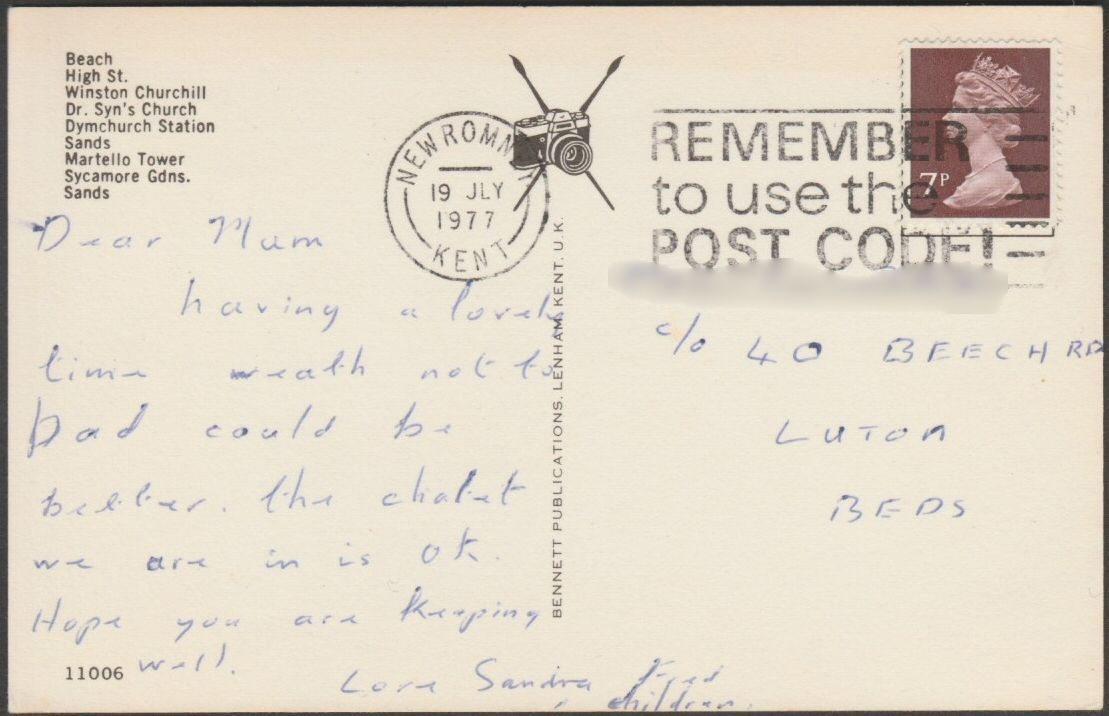 Beach
High St.
Winston Churchill
Dr. Syn's Church
Dymchurch Station
Sands
Martello Tower
Sycamore Gdns.
Sands
NEW ROMNEY
19 JLY
1977
KENT
REMEMBER
to use the
POST CODE!
7P
Dear Mum
having a lovely
time weath not to
bad could be
better. the chalet
we are in is ok.
Hope you are keeping
well.
Love Sandra Fred
children.
11006
BENNETT PUBLICATIONS, LENHAM, KENT. U.K.
c/o 40 BEECH RD
LUTON
BEDS